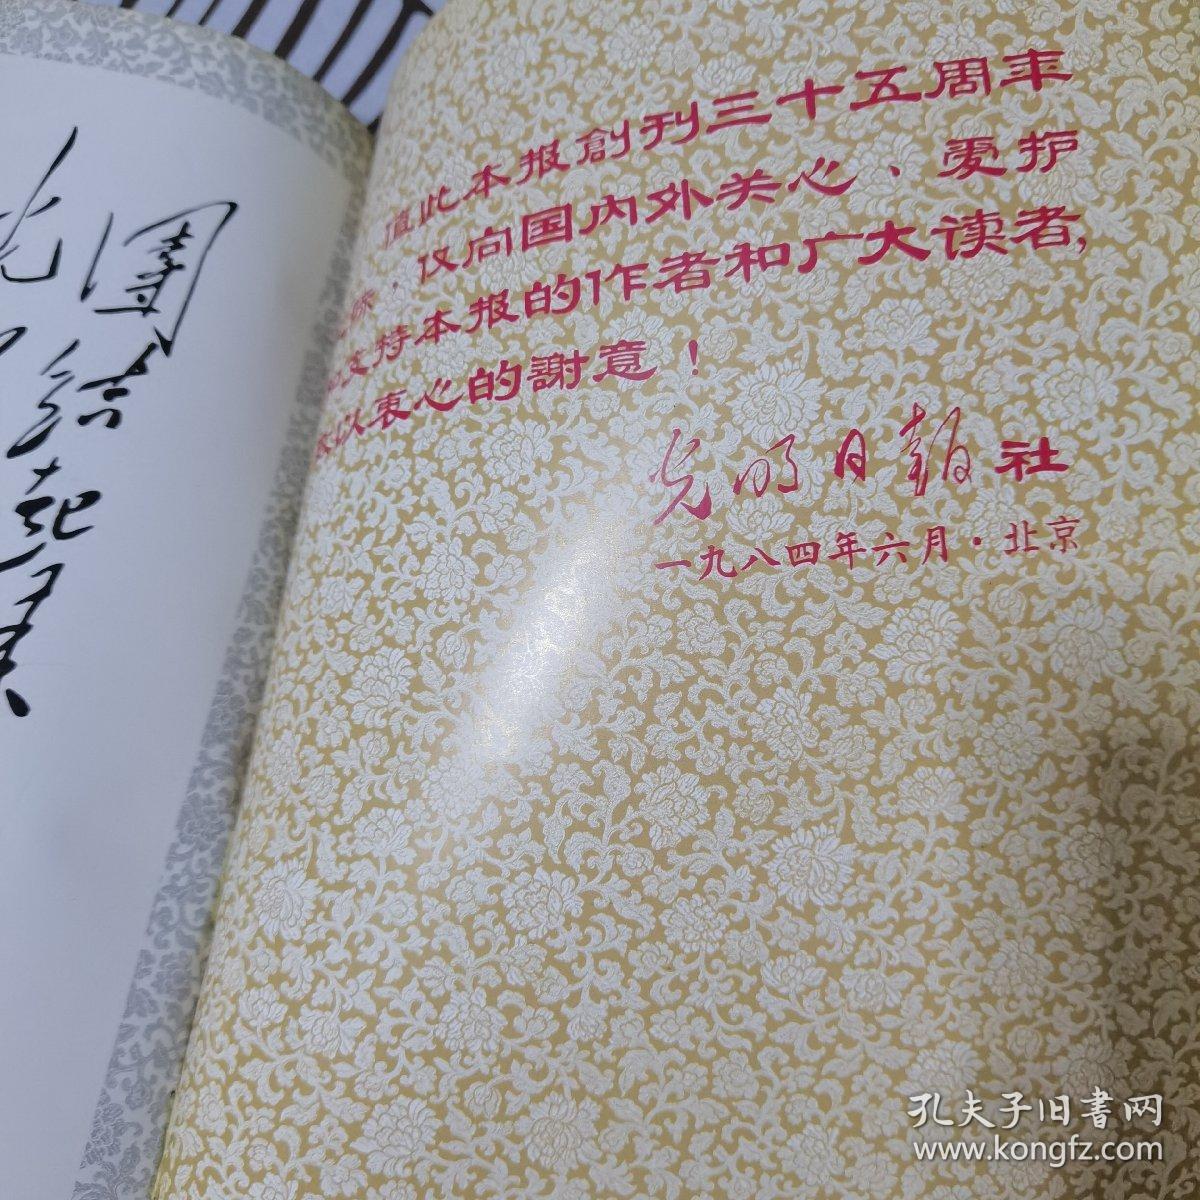 值此本报創刊三十五周年
际，仅向国内外关心、爱护
和支持本报的作者和广大读者，
表以衷心的謝意！
光明日報社
一九八四年六月·北京
團結起来
孔夫子旧書网
www.kongfz.com